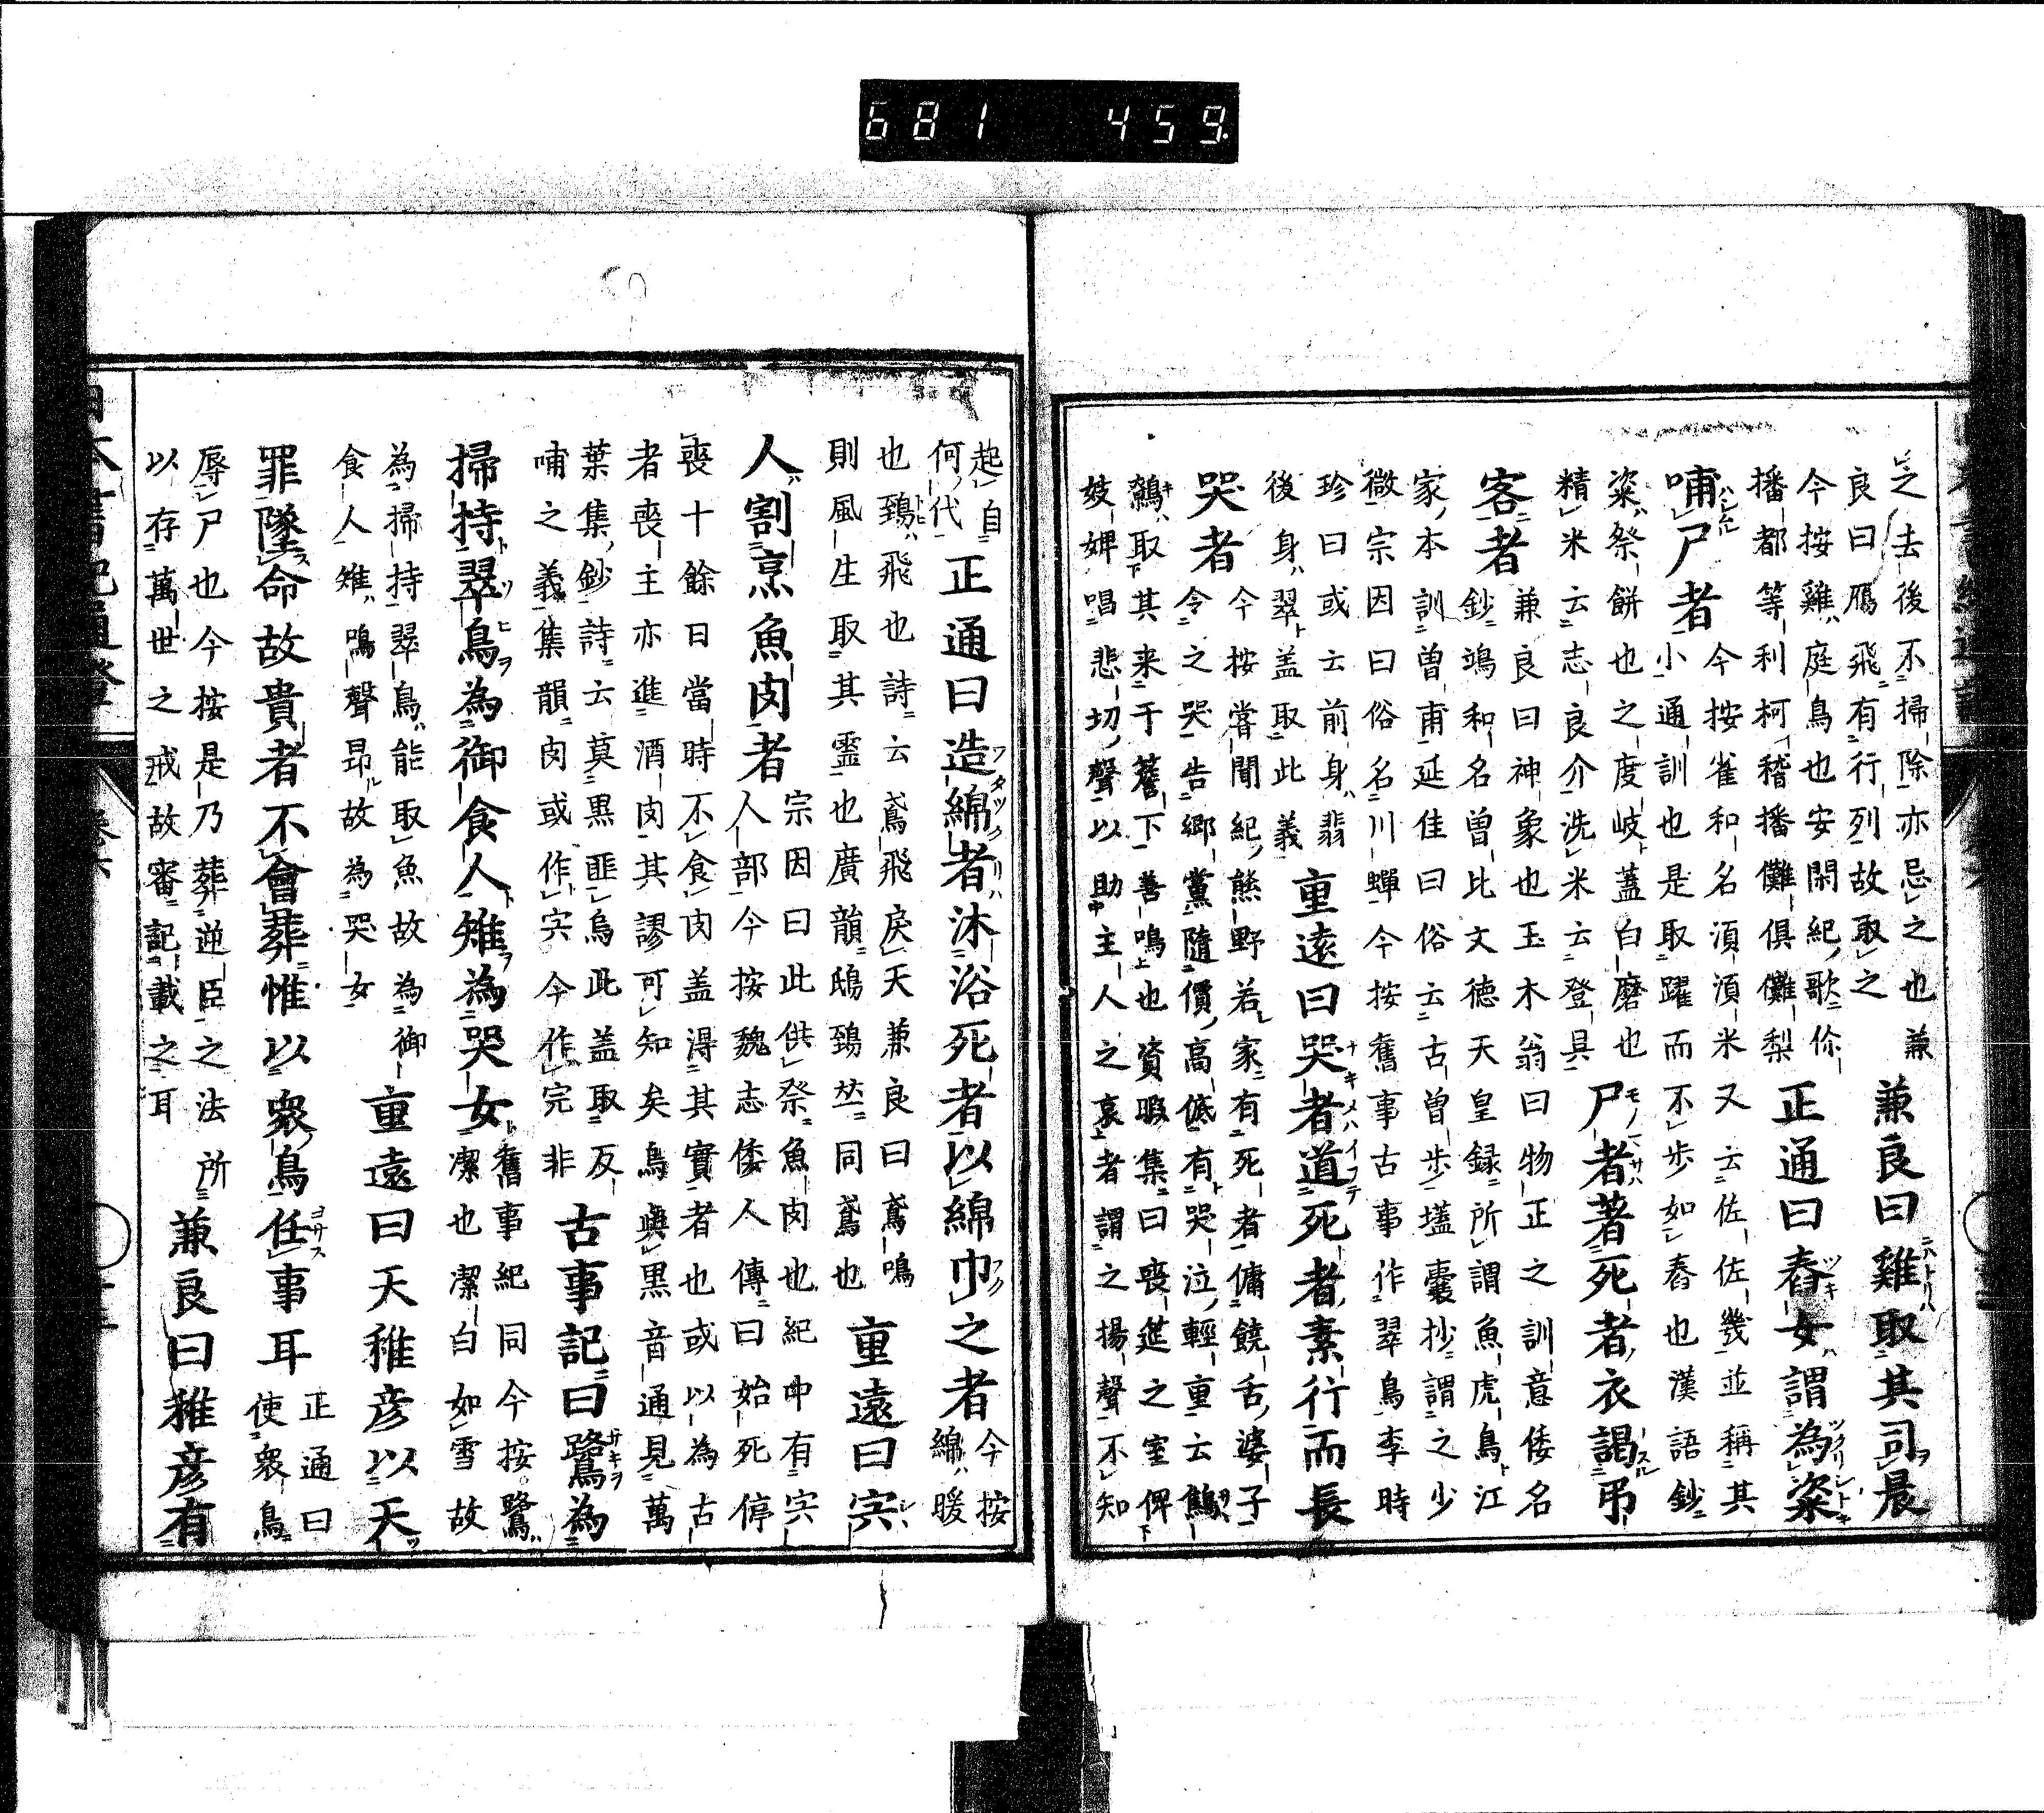 681 459
之去後不掃除亦忌之也兼
良曰鴈飛有行列故取之
兼良曰雞取其司晨
今按雞庭鳥也安閑紀歌伱
播都等利柯稽播儺倶儺梨
正通曰舂女謂為粢
哺尸者
今按雀和名湏湏米又云佐佐幾並稱其
小通訓也是取躍而不歩如舂也漢語鈔
粢祭餅也之度岐蓋白磨也
精米云志良介洗米云登具
尸者著死者衣謁弔
客者
兼良曰神象也玉木翁曰物正之訓意倭名
鈔鴗和名曽比文徳天皇録所謂魚虎鳥江
家本訓曽甫延佳曰俗云古曽歩壒嚢抄謂之少
微宗因曰俗名川蟬今按奮事古事作翠鳥李時
珍曰或云前身翡
後身翠蓋取此義
重遠曰哭者道死者素行而長
哭者
今按甞聞紀熊野若家有死者傭饒舌婆子
令之哭告郷黨隨價高低有哭泣輕重云
鷦取其来于簷下善鳴也資暇集曰喪筵之室俾
妓婢唱悲切聲以助主人之哀者謂之揚聲不知
起自
何代
正通曰造綿者沐浴死者以綿巾之者
今按
綿暖
也鵄飛也詩云鳶飛戻天兼良曰鳶鳴
則風生取其霊也廣韻鴟鵄竝同鳶也
重遠曰宍
人割烹魚肉者
宗因曰此供祭魚肉也紀中有宍
人部今按魏志倭人傳曰始死停
喪十餘日當時不食肉蓋得其實者也或以為古
者喪主亦進酒肉其謬可知矣烏與黒音通見萬
葉集鈔詩云莫黒匪烏此蓋取反
哺之義集韻肉或作宍今作完非
古事記曰鷺為
掃持翠鳥為御食人雉為哭女
奮事紀同今按鷺
潔也潔白如雪故
為掃持翠鳥能取魚故為御
食人雉鳴聲昂故為哭女
重遠曰天稚彦以天
罪墜命故貴者不會葬惟以衆鳥任事耳
正通曰
使衆鳥
辱尸也今按是乃葬逆臣之法所
以存萬世之戒故審記載之耳
兼良曰稚彦有